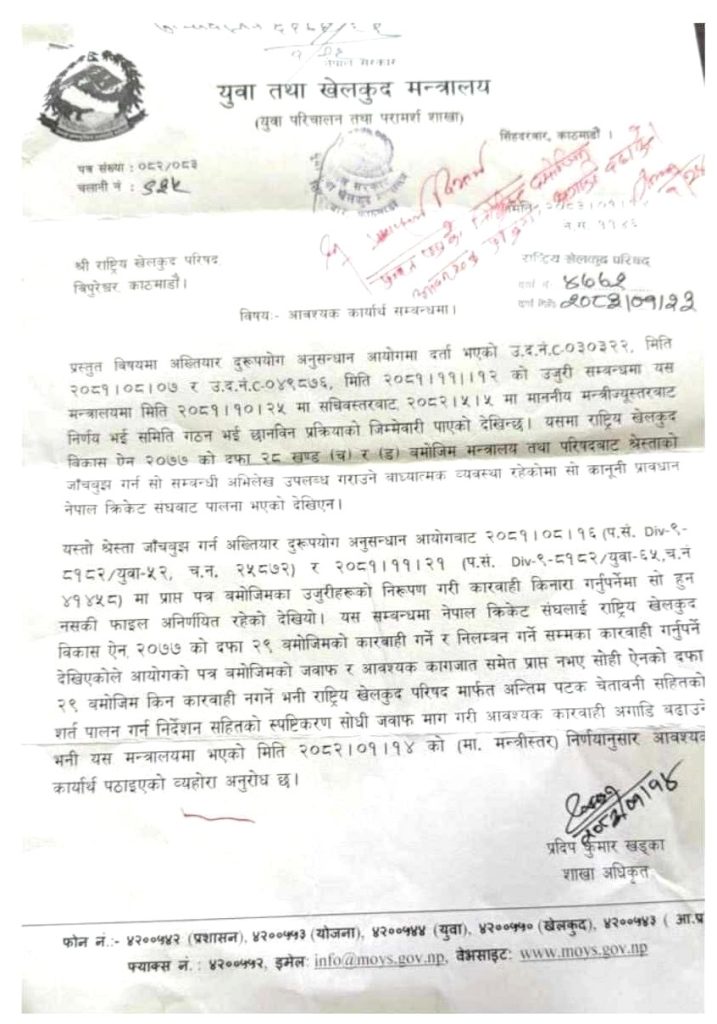 नेपाल सरकार
युवा तथा खेलकुद मन्त्रालय
(युवा परिचालन तथा परामर्श शाखा)
सिंहदरबार, काठमाडौं ।
पत्र संख्या : ०८२/०८३
चलानी नं :
श्री राष्ट्रिय खेलकुद परिषद
त्रिपुरेश्वर, काठमाडौं।
राष्ट्रिय खेलकुद परिषद
विषयः- आवश्यक कार्यार्थ सम्बन्धमा।
प्रस्तुत विषयमा अख्तियार दुरूपयोग अनुसन्धान आयोगमा दर्ता भएको उ.द.नं.C-०३०३२२, मिति
२०८१।०८।०७ र उ.द.नं.C-०४९८७६, मिति २०८१।११।१२ को उजुरी सम्बन्धमा यस
मन्त्रालयमा मिति २०८१।१०।२५ मा सचिवस्तरबाट, २०८२।५।५ मा माननीय मन्त्रीज्यूस्तरबाट
निर्णय भई समिति गठन भई छानविन प्रक्रियाको जिम्मेवारी पाएको देखिन्छ। यसमा राष्ट्रिय खेलकुद
विकास ऐन २०७७ को दफा २८ खण्ड (च) र (ड) बमोजिम मन्त्रालय तथा परिषदबाट श्रेस्ताको
जाँचबुझ गर्न सो सम्बन्धी अभिलेख उपलब्ध गराउने वाध्यात्मक व्यवस्था रहेकोमा सो कानूनी प्रावधान
नेपाल क्रिकेट संघबाट पालना भएको देखिएन।
यस्तो श्रेस्ता जाँचबुझ गर्न अख्तियार दुरूपयोग अनुसन्धान आयोगबाट २०८१।०८।१६ (प.सं. Div-९-
८१८२/युवा-५२, च.न. २५८७२) र २०८१।११।२१ (प.सं. Div-९-८१८२/युवा-६५,च.नं
४१४५८) मा प्राप्त पत्र बमोजिमका उजुरीहरूको निरूपण गरी कारवाही किनारा गर्नुपर्नेमा सो हुन
नसकी फाइल अनिर्णयित रहेको देखियो। यस सम्बन्धमा नेपाल क्रिकेट संघलाई राष्ट्रिय खेलकुद
विकास ऐन, २०७७ को दफा २९ बमोजिमको कारवाही गर्ने र निलम्बन गर्ने सम्मका कारवाही गर्नुपर्ने
देखिएकोले आयोगको पत्र बमोजिमको जवाफ र आवश्यक कागजात समेत प्राप्त नभए सोही ऐनको दफा
२९ बमोजिम किन कारवाही नगर्ने भनी राष्ट्रिय खेलकुद परिषद मार्फत अन्तिम पटक चेतावनी सहितको
शर्त पालन गर्न निर्देशन सहितको स्पष्टिकरण सोधी जवाफ माग गरी आवश्यक कारवाही अगाडि बढाउने
भनी यस मन्त्रालयमा भएको मिति २०८२।०१।१४ को (मा. मन्त्रीस्तर) निर्णयानुसार आवश्यक
कार्यार्थ पठाइएको व्यहोरा अनुरोध छ।
प्रदिप कुमार खड्का
शाखा अधिकृत
फोन नं.:- ४२००५४२ (प्रशासन), ४२००५१३ (योजना), ४२००५४४ (युवा), ४२००५५० (खेलकुद), ४२००५४३ ( आ.प्र
फ्याक्स नं. : ४२००५५२, इमेल: info@moys.gov.np, वेभसाइट: www.moys.gov.np